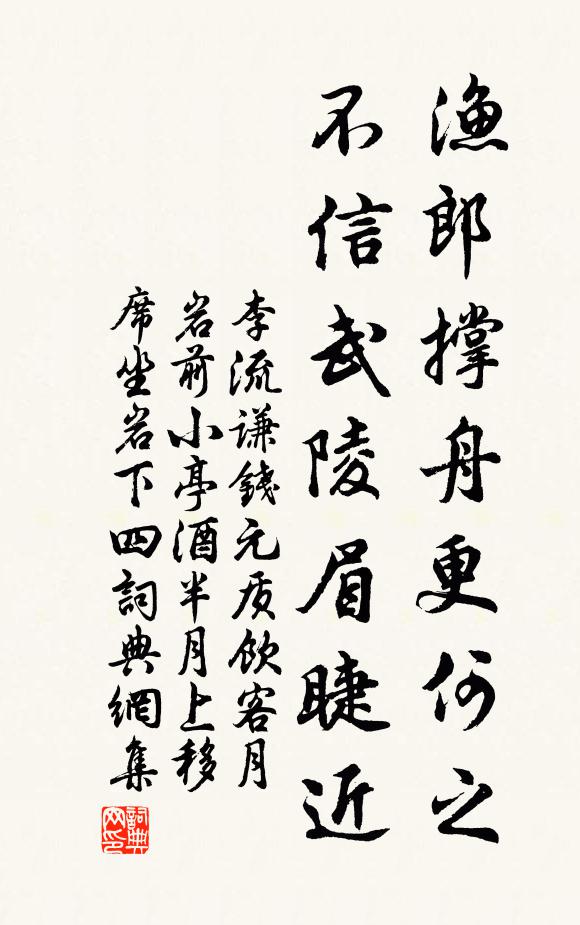 渔郎撑舟更何之
不信武陵眉睫近
李流谦錢元质飲客月
岩前小亭酒半月上移
席坐岩下四詞典網集
詞典网印